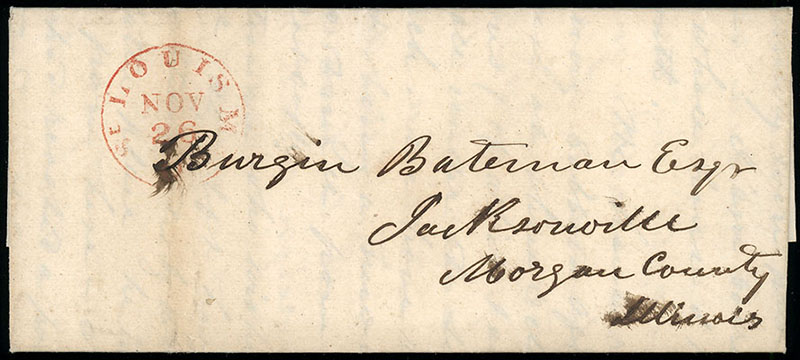 St LOUIS M
NOV
26
Burgin Bateman Esqr
Jacksonville
Morgan County
Illinois